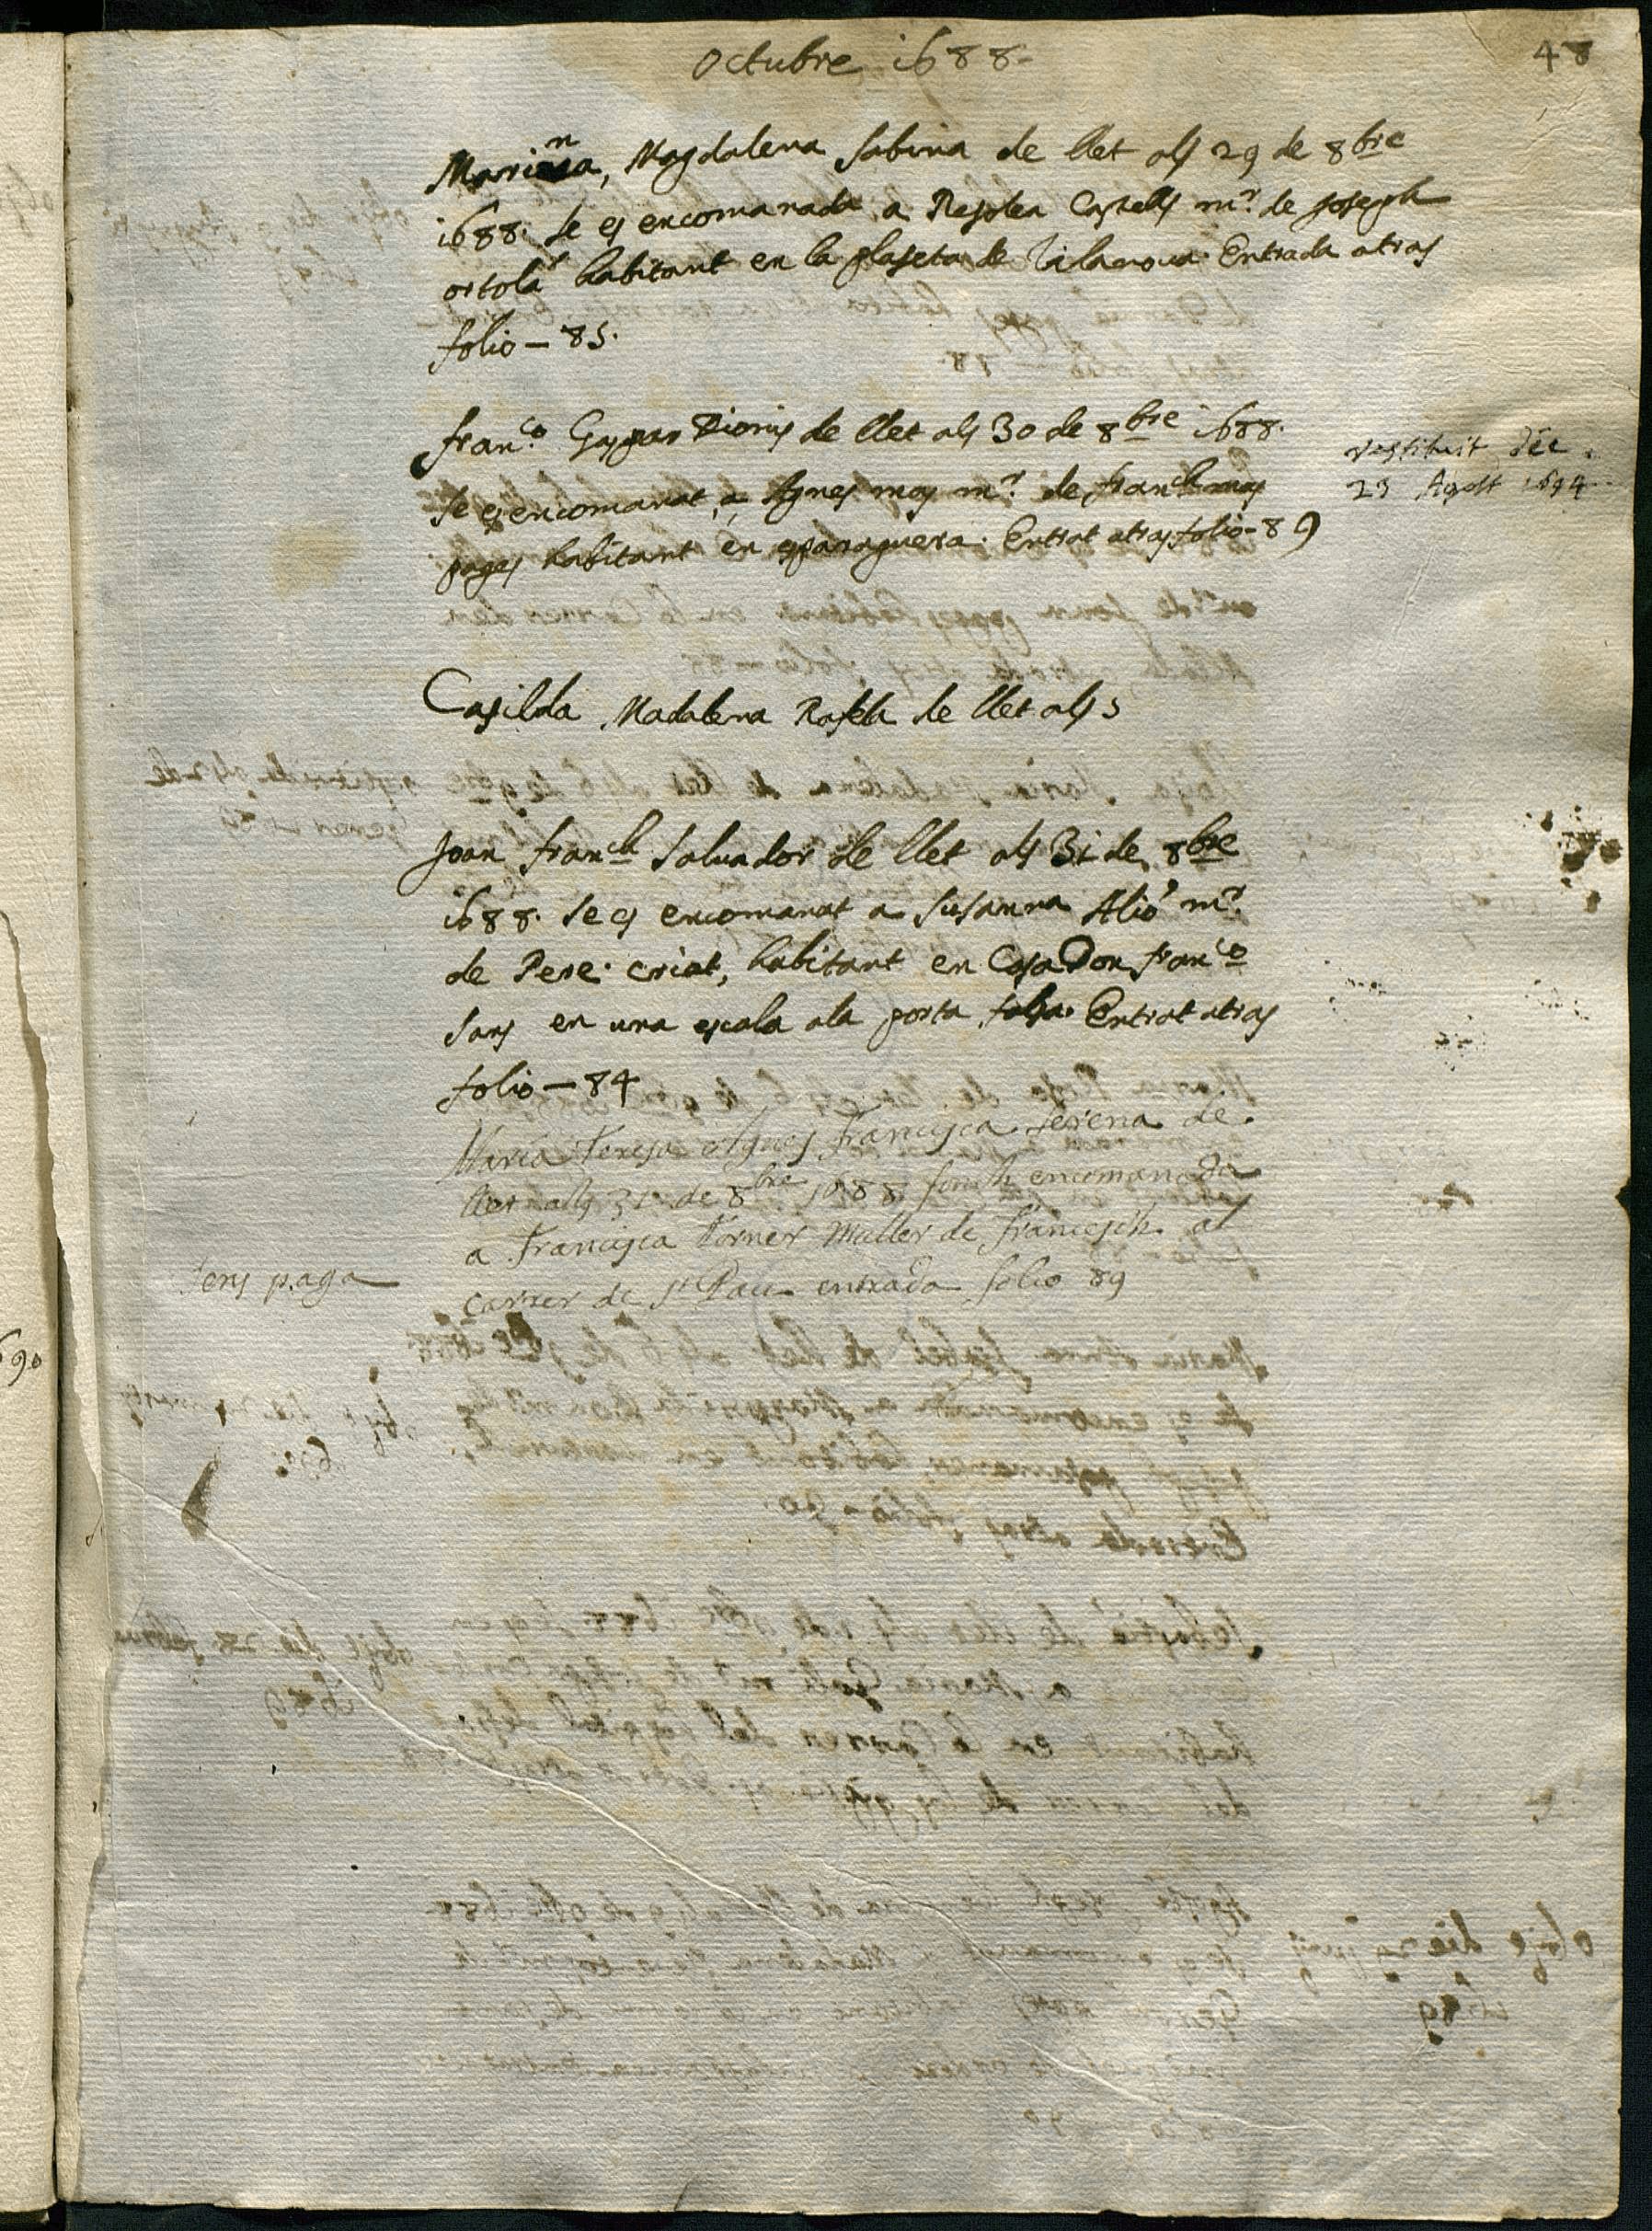 Octubre 1688
48
Marrina, Magdalena Sabina de llet als 29 de 8bre
1688. Se es encomanada a Castells mr. de Joseph
ortolà habitant en la plaseta de Vilanova. Entrada atras
folio – 85.
franco. Gaspar Dionis de llet als 30 de 8bre 1688.
Se es encomanat, a Agnes moy mr. de franch moy
pages habitant en esparaguera. Entrat atras folio - 89
restituit die
23 Agost 1694
Casilda Madalena Rafela de llet als
Joan franch Salvador de llet als 31 de 8bre
1688. Se es encomanat a Susanna Alió mr.
de Pere. criat, habitant en Casa Don franco
Sans en una escala a la porta falsa. Entrat atras
folio – 84
Maria Teresa Agnes Francisca Serena de
llet alls 31 de 8bre 1688 fonch encomanada
a Francisca Torner Muller de Francesch al
Sens paga
carrer de St Pau entrada folio 89